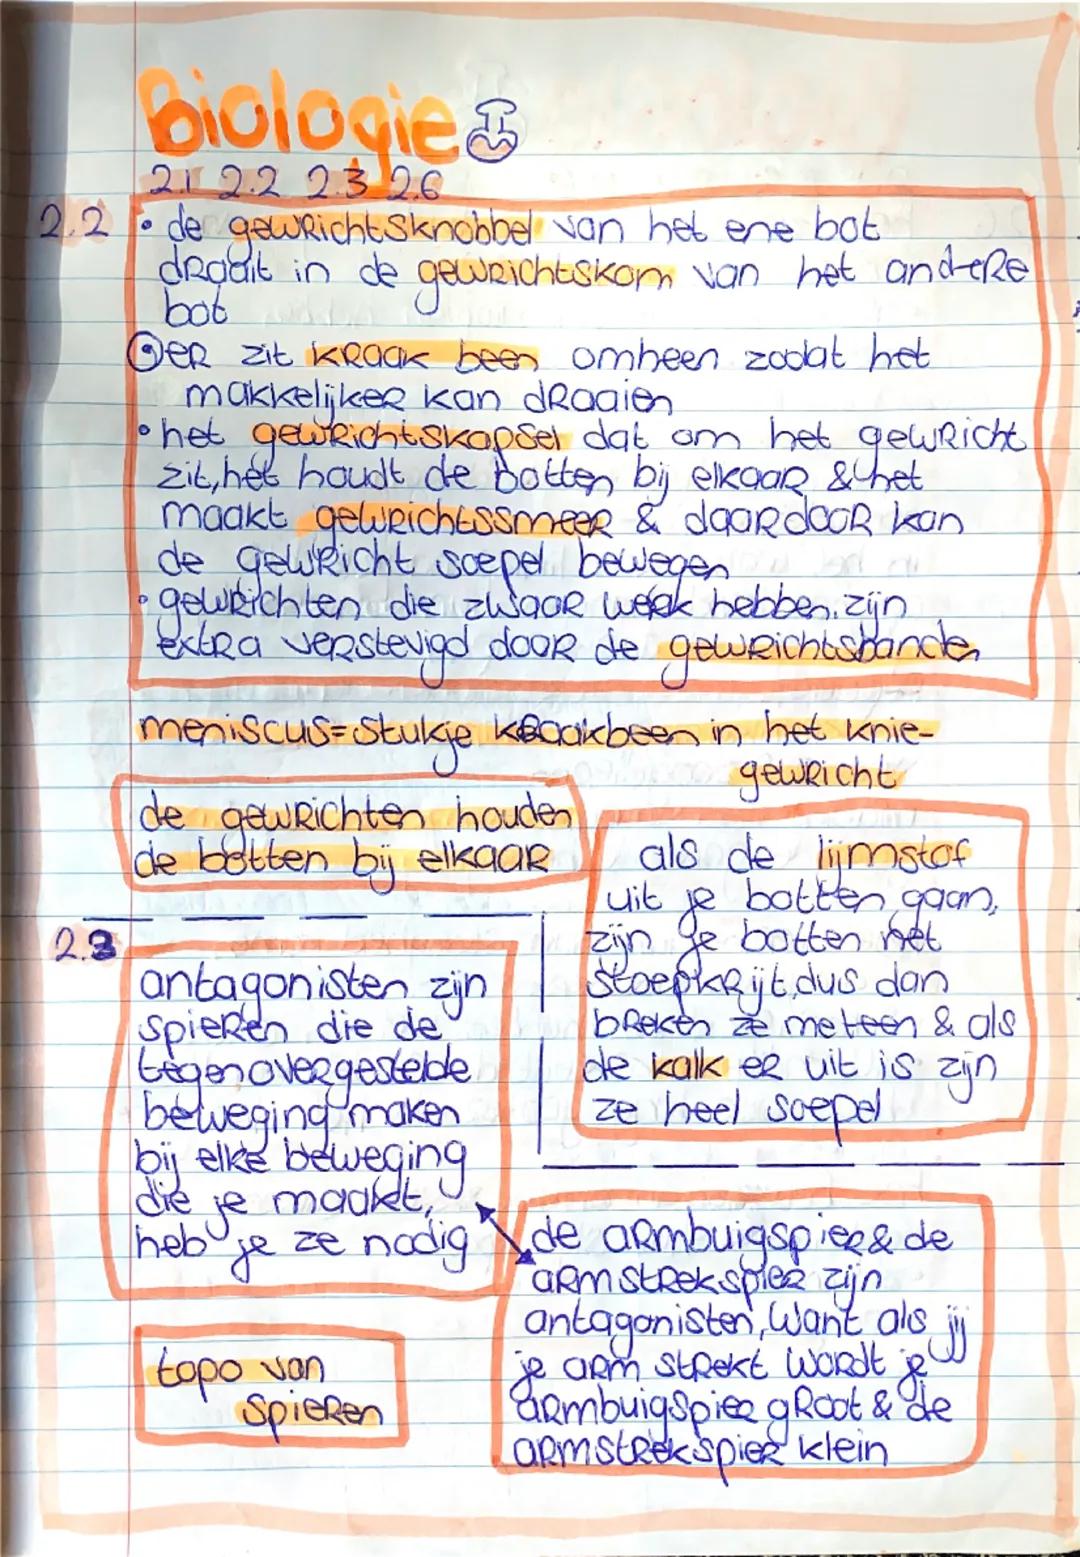 Biologie
2.1 2.2 2.3 2.6
2.2
• de gewrichtsknobbel van het ene bot
draait in de gewrichtskom van het andere
bot
• er zit kraak been omheen zodat het
makkelijker kan draaien
• het gewrichtskapsel dat om het gewricht
zit, het houdt de botten bij elkaar & het
maakt gewrichtssmeer & daardoor kan
de gewricht soepel bewegen
• gewrichten die zwaar werk hebben, zijn
extra verstevigd door de gewrichtsbanden
meniscus= stukje kraakbeen in het knie-
gewricht
de gewrichten houden
de botten bij elkaar
als de lijmstof
uit je botten gaan,
zijn je botten net
stoepkrijt, dus dan
breken ze meteen & als
de kalk er uit is zijn
ze heel soepel
2.3
antagonisten zijn
spieren die de
tegenovergestelde
beweging maken
bij elke beweging
die je maakt,
heb je ze nodig
de armbuigspier & de
armstrekspier zijn
antagonisten, want als jij
je arm strekt wordt je
armbuigspier groot & de
armstrekspier klein
topo van
spieren